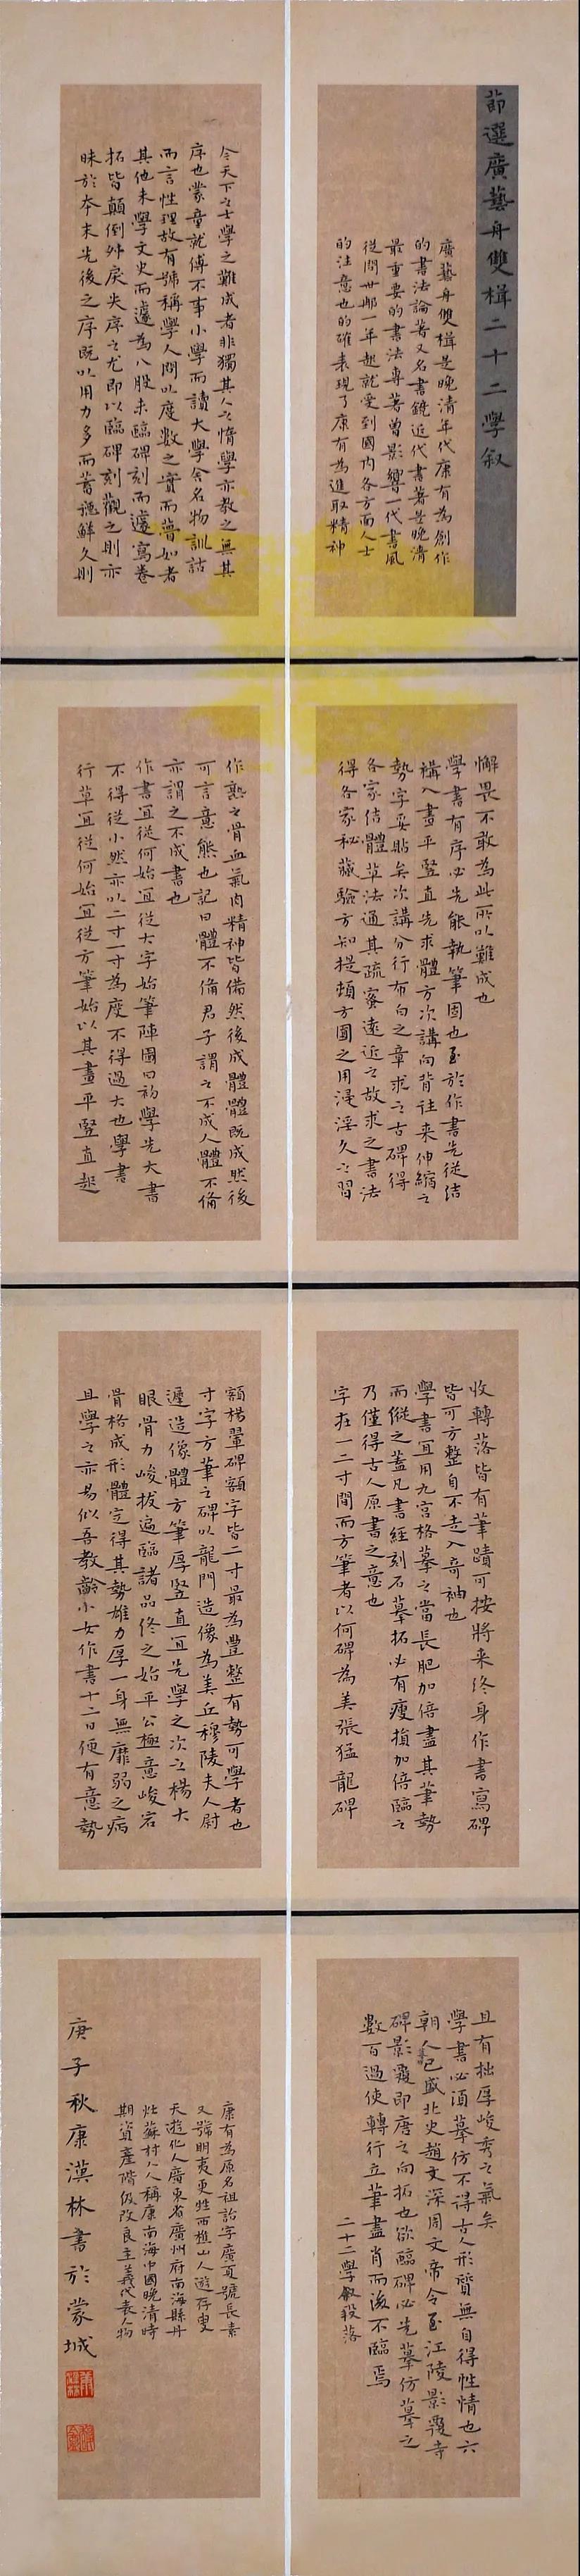 節選廣藝舟雙楫二十二學叙
廣藝舟雙楫是晚清年代康有為創作
的書法論著又名書鏡近代書著是晚清
最重要的書法專著曾影響一代書風
從問世那一年起就受到國內各方面人士
的注意也的確表現了康有為進取精神
今天下之士學之難成者非獨其人之惰學亦教之無其
序也蒙童就傅不事小學而讀大學舍名物訓詁
而言性理故有號稱學人問以度數之實而瞢如者
其他未學文史而遽為八股未臨碑刻而遽寫卷
拓皆顛倒舛戾失序之尤即以臨碑刻觀之則亦
昧於本末先後之序既以用力多而蓄疑鮮久則
懈畏不敢為此所以難成也
學書有序必先能執筆固也至於作書先從結
構入畫平豎直先求體方次講向背往來伸縮之
勢字妥貼矣次講分行布白之章求之古碑得
各家結體草法通其疏蜜遠近之故求之書法
得各家秘藏驗方知提頓方圓之用浸淫久之習
作熟之骨血氣肉精神皆備然後成體體既成然後
可言意態也記曰體不備君子謂之不成人體不備
亦謂之不成書也
作書宜從何始宜從大字始筆陣圖曰初學先大書
不得從小然亦以二寸一寸為度不得過大也學書
行草宜從何始宜從方筆始以其畫平豎直起
收轉落皆有筆蹟可按將來終身作書寫碑
皆可方整自不走入奇衺也
學書宜用九宮格摹之當長肥加倍盡其筆勢
而縱之蓋凡書經刻石摹拓必有瘦損加倍臨之
乃僅得古人原書之意也
字在一二寸間而方筆者以何碑為美張猛龍碑
額楊翬碑額字皆二寸最為豐整有勢可學者也
寸字方筆之碑以龍門造像為美丘穆陵夫人尉
遲造像體方筆厚豎直宜先學之次之楊大
眼骨力峻拔遍臨諸品終之始平公極意峻宕
骨格成形體定得其勢雄力厚一身無靡弱之病
且學之亦易似吾教齡小女作書十二日便有意勢
且有拙厚峻秀之氣矣
學書必須摹仿不得古人形質無自得性情也六
朝人已盛北史趙文深周文帝令至江陵影覆寺
碑影覆即唐之向拓也欲臨碑必先摹仿摹之
數百過使轉行立筆盡肖而後不臨焉
二十二學叙段落
康有為原名祖詒字廣夏號長素
又號明夷更甡西樵山人遊存叟
天遊化人廣東省廣州府南海縣丹
灶蘇村人人稱康南海中國晚清時
期資產階級改良主義代表人物
庚子秋康漢林書於蒙城